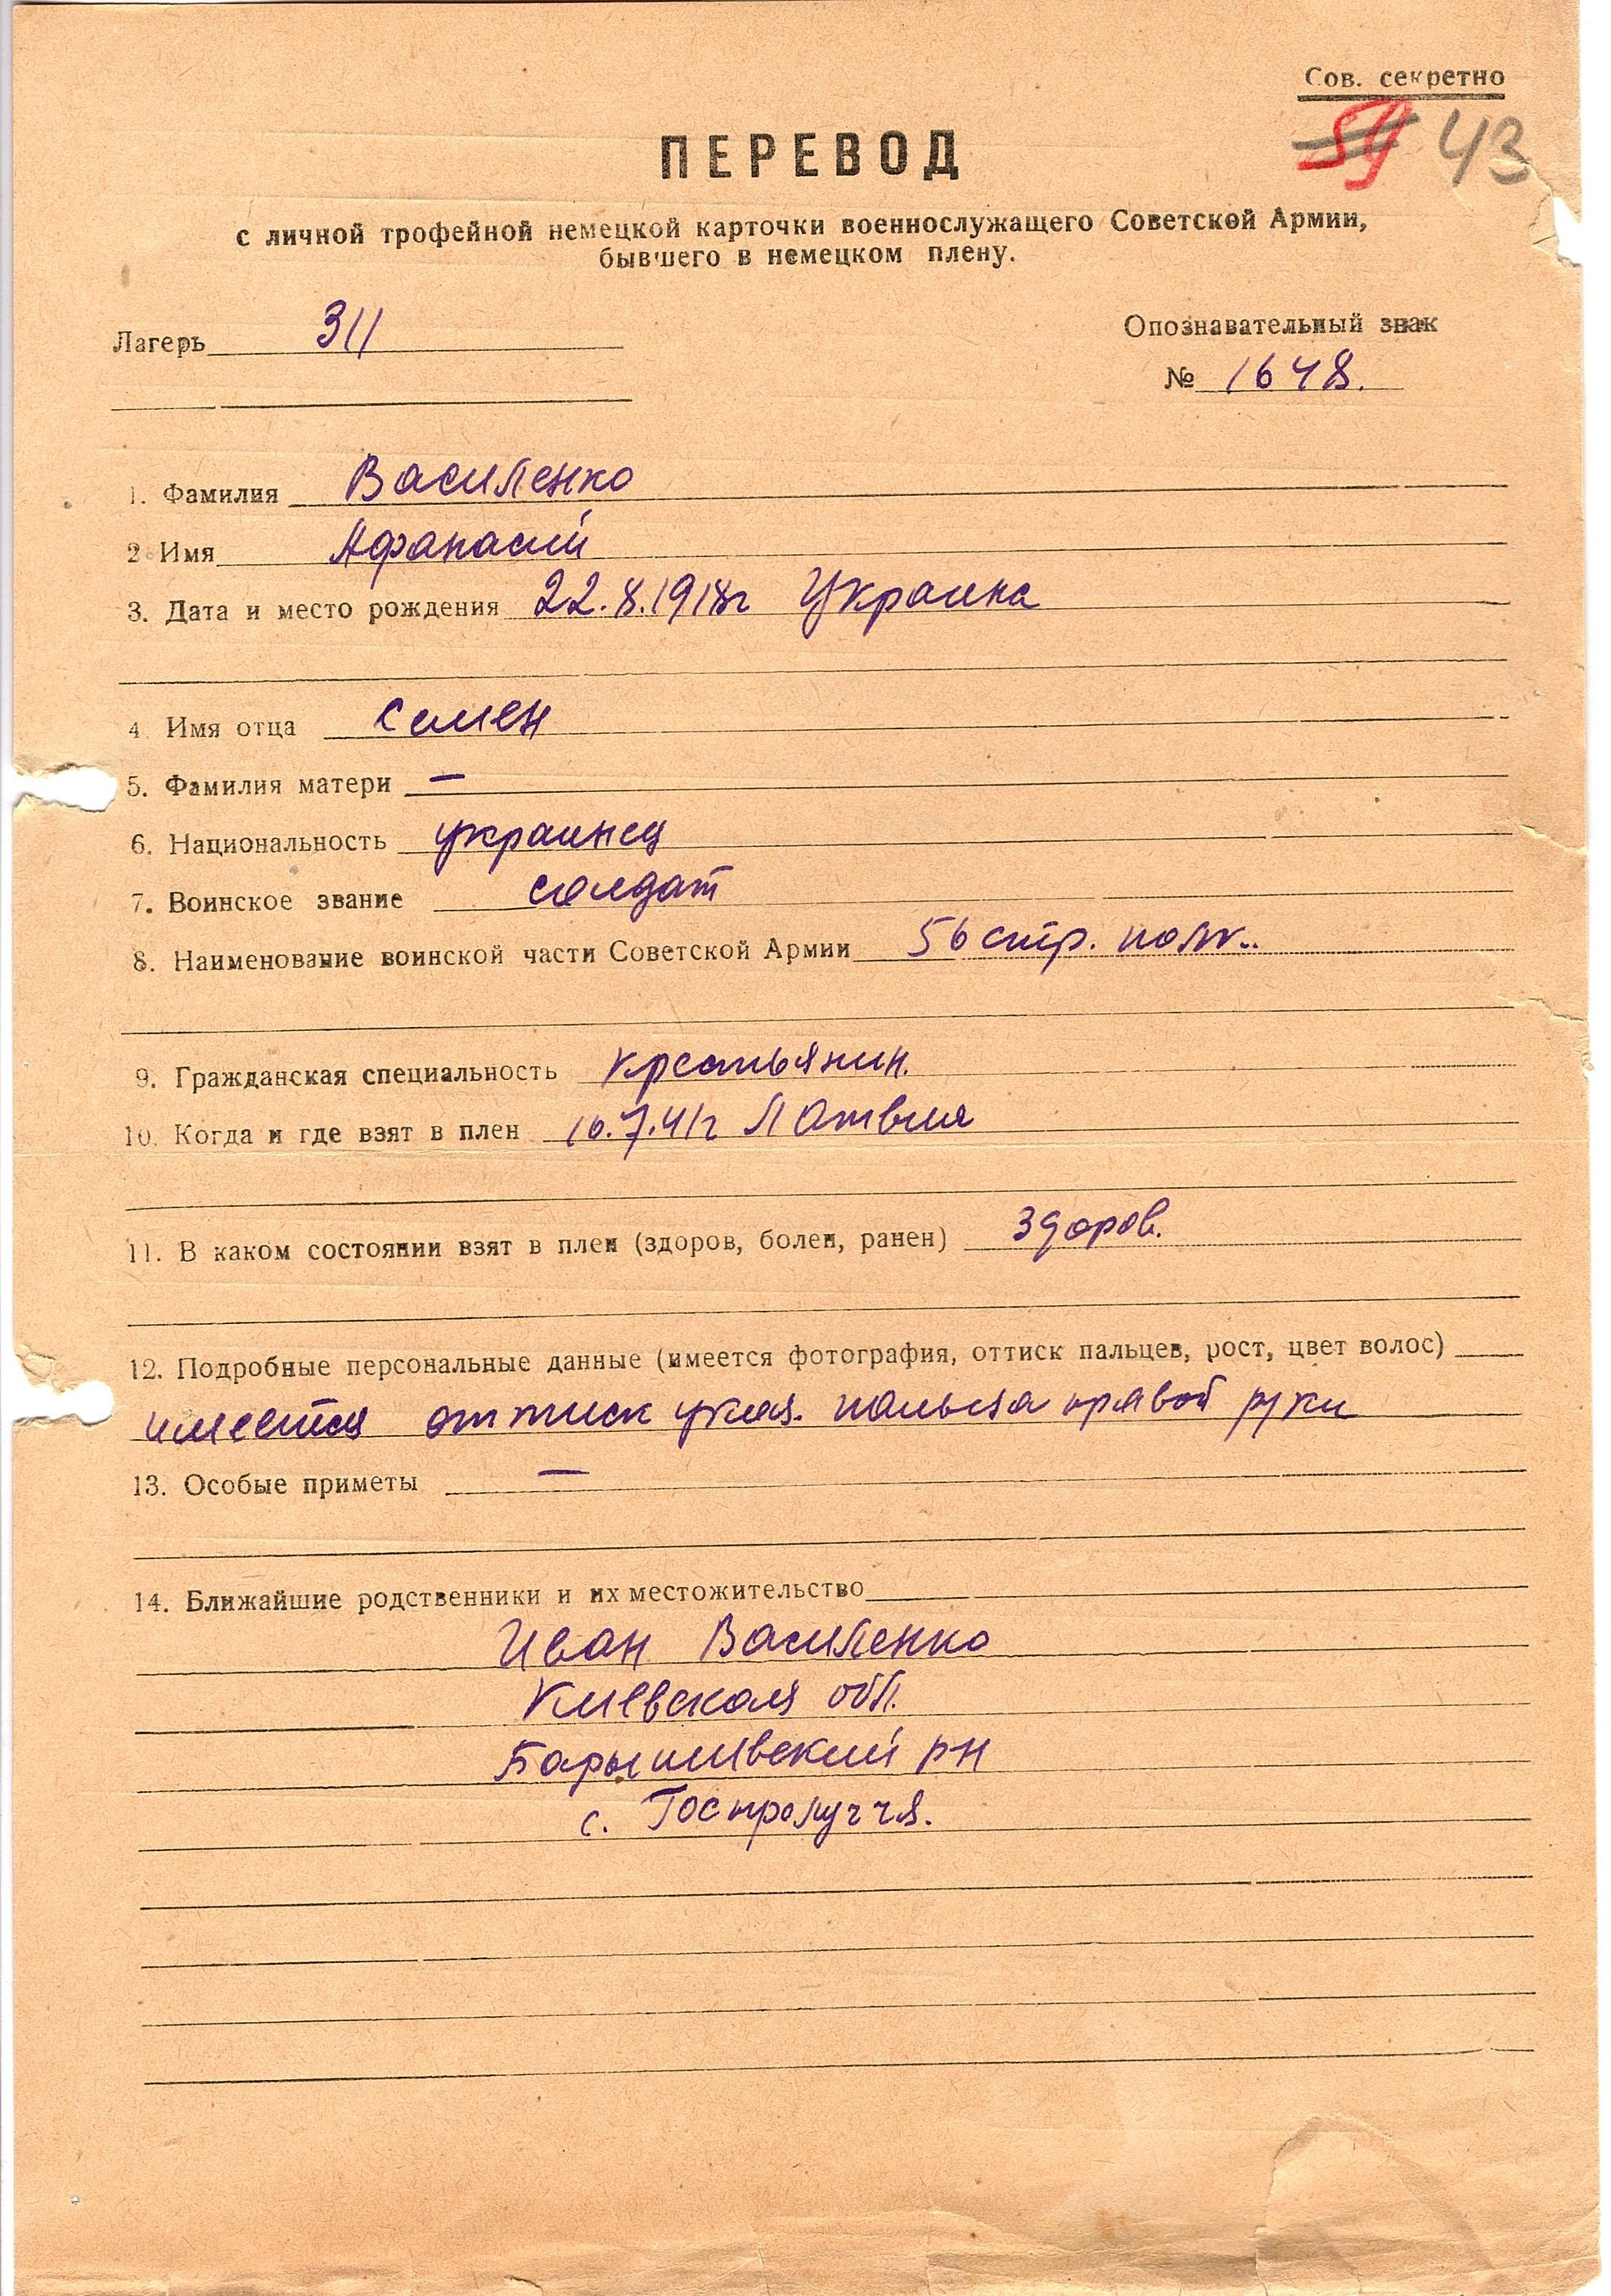 Сов. секретно
59 43
ПЕРЕВОД
с личной трофейной немецкой карточки военнослужащего Советской Армии,
бывшего в немецком плену.
Лагерь 311
Опознавательный знак
№ 1648.
1. Фамилия Василенко
2 Имя Афанасий
3. Дата и место рождения 22.8.1918г Украина
4 Имя отца Семен
5. Фамилия матери —
6. Национальность украинец
7. Воинское звание солдат
8. Наименование воинской части Советской Армии 56 стр. полк..
9. Гражданская специальность крестьянин.
10. Когда и где взят в плен 16.7.41г Латвия
11. В каком состоянии взят в плен (здоров, болен, ранен) здоров.
12. Подробные персональные данные (имеется фотография, оттиск пальцев, рост, цвет волос)
имеется оттиск указ. пальца правой руки
13. Особые приметы —
14. Ближайшие родственники и их местожительство
Иван Василенко
Киевская обл.
Барышивский рн
с. Гостролуччя.